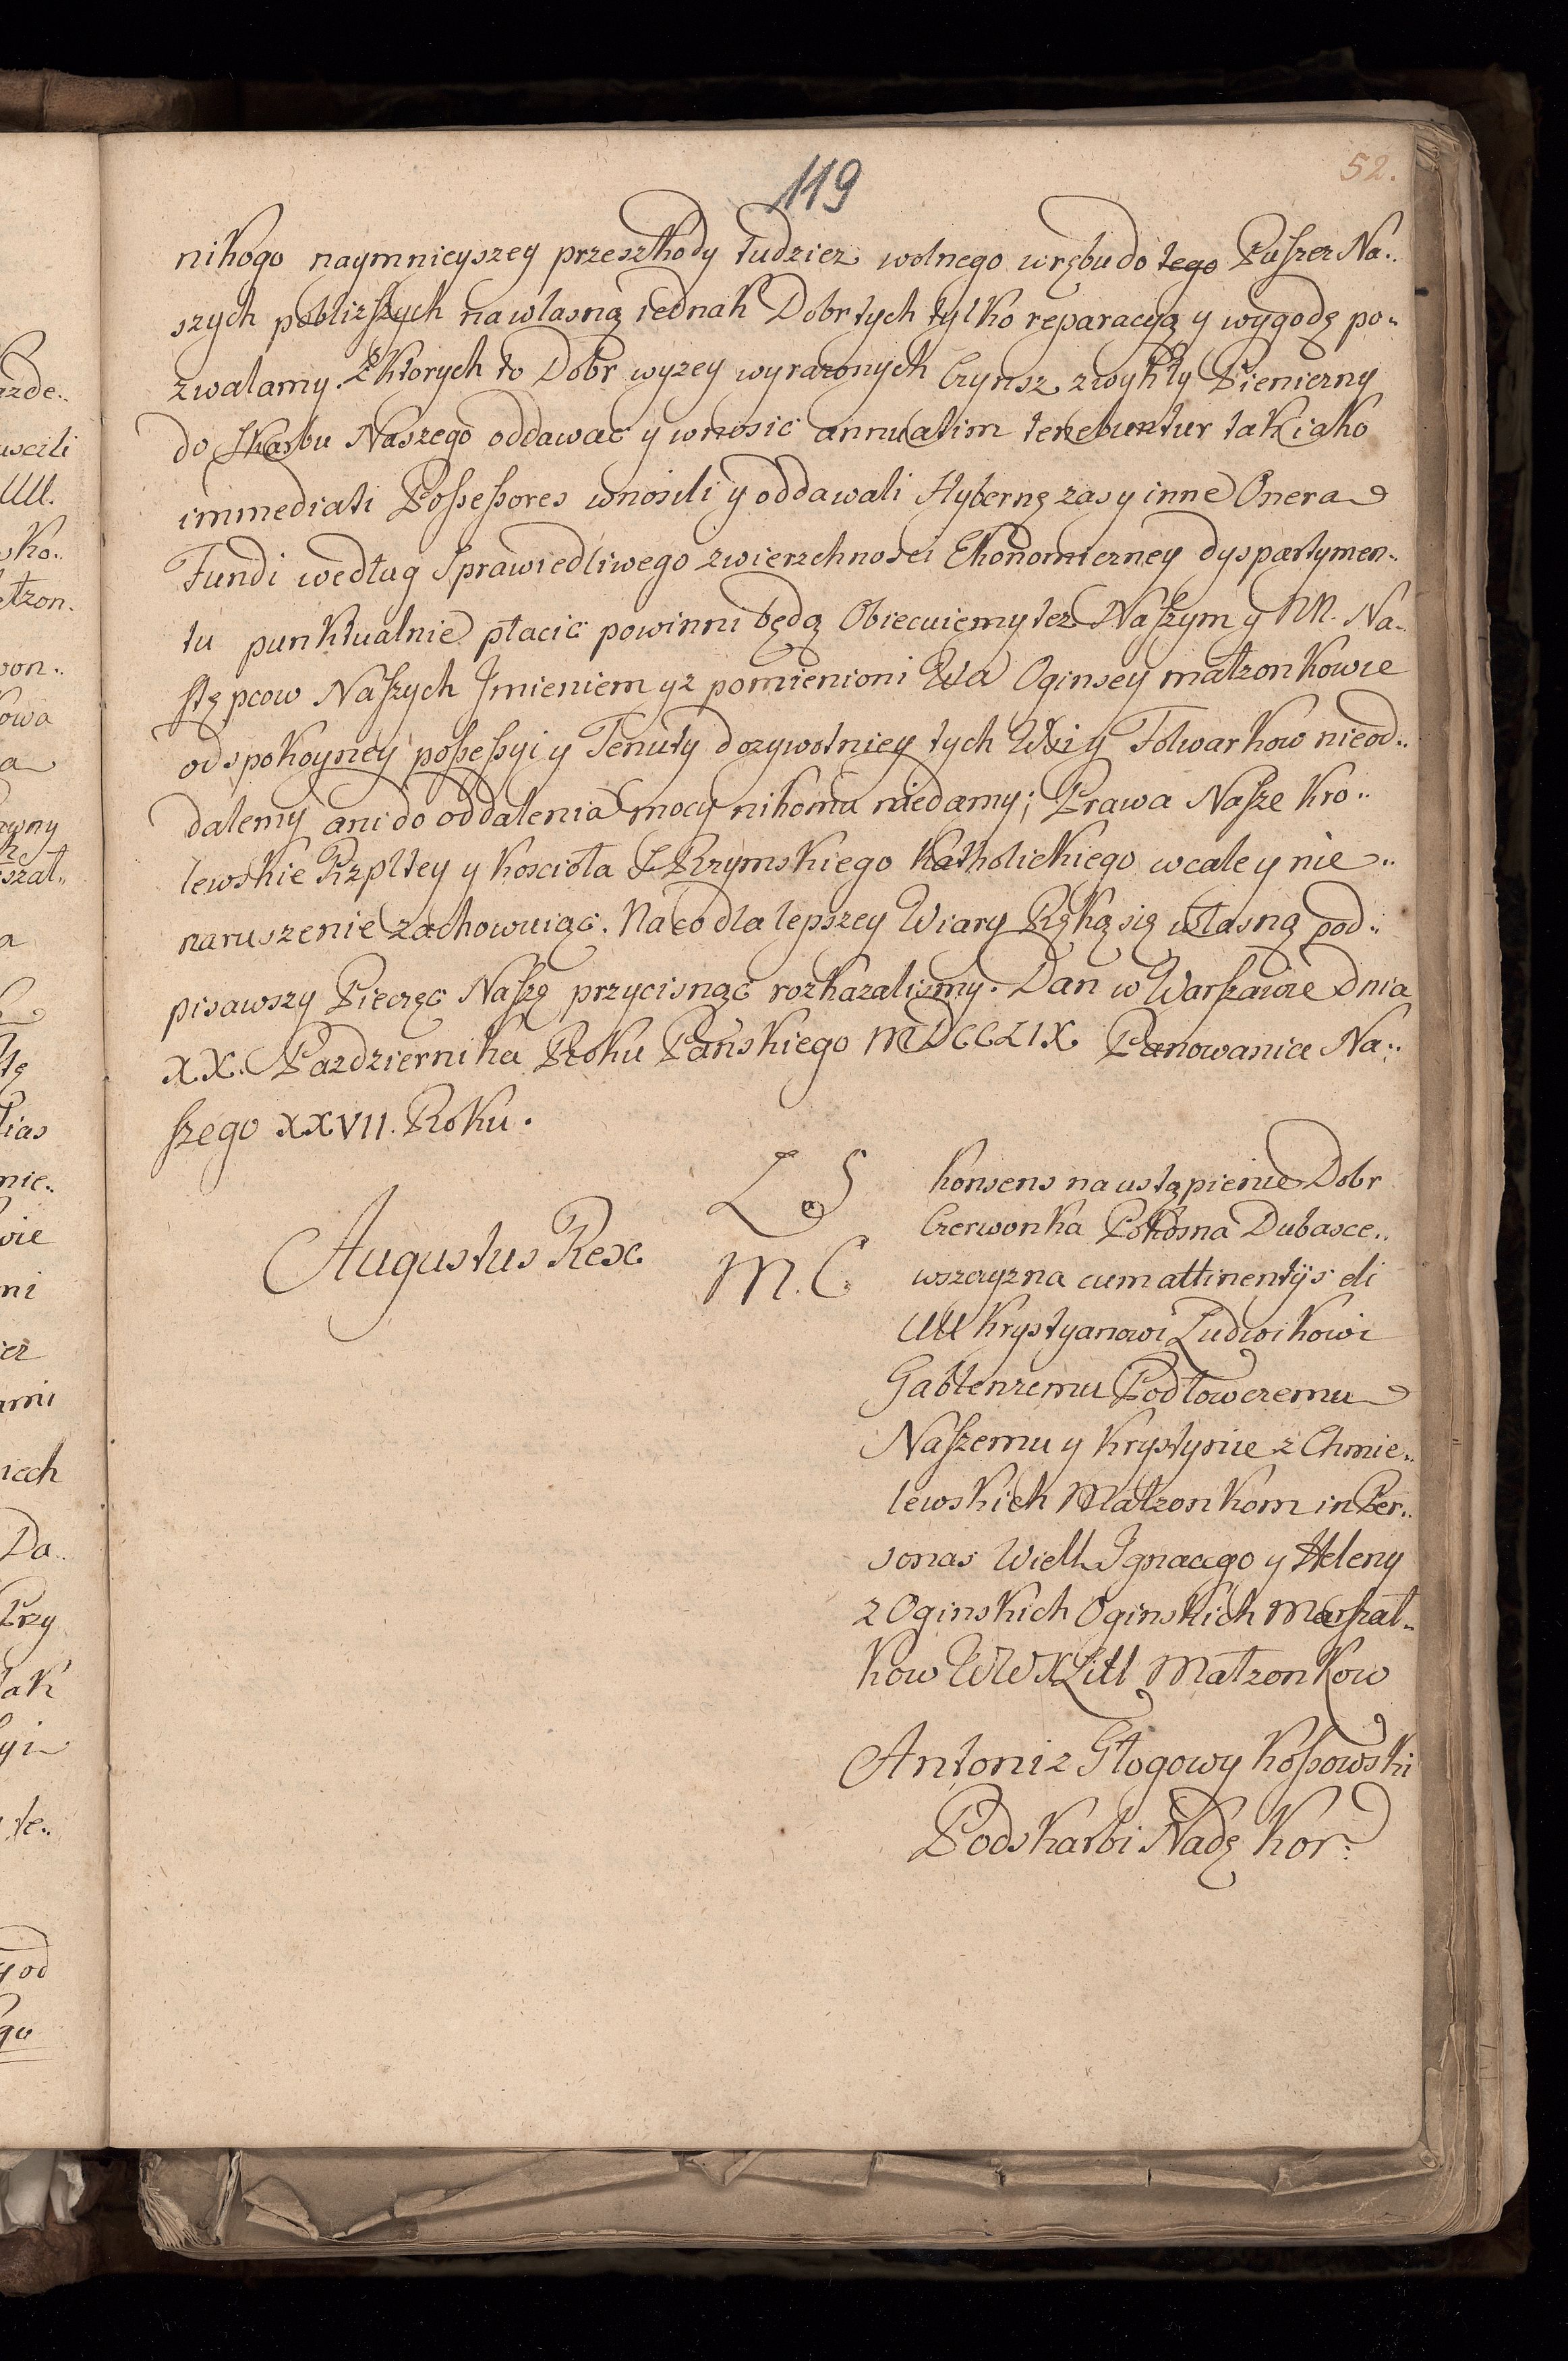 119
52.
nikogo naymnieyszey przeszkody tudziez wolnego wrębu do tego Puszcz Na..
szych poblizszych na własną iednak Dobr tych tylko reparacyą y wygodę po..
zwalamy. Z ktorych to Dobr wyzey wyrazonych Czynsz zwykły Pienięzny
do Skarbu Naszego oddawać y wnosić annuatim tenebuntur tak iako
immediati Possessores wnosili y oddawali Hybernę zas y inne Onera
Fundi według Sprawiedliwego zwierzchności Ekonomiczney dyspartymen..
tu punktualnie płacić powinni będą Obiecuięmy tez Naszym y NN. Na..
stępcow Naszych Jmieniem yz pomienioni Oginscy małzonkowie
od spokoyney possessyi y Tenuty dozywotniey tych Wsi y Folwarkow nieod..
dalemy ani do oddalenia mocy nikomu niedamy; Prawa Nasze Kro..
lewskie Rzpltey y Koscioła S Rzymskiego Katholickiego wcale y nie..
naruszenie zachowuiąc. Na co dla lepszey Wiary Ręką się własną pod..
pisawszy Pieczęć Naszę przycisnąć rozkazalismy. Dan w Warszawie Dnia
XX. Pazdziernika Roku Pańskiego MDCCLIX Panowania Na..
szego XXVII. Roku.
L S
M. C.
Augustus Rex
Konsens na ustąpienie Dobr
Czerwonka Pokosna Dubasce..
wszczyzna cum attinentijs
UU Krystyanowi Ludwikowi
Gablenzemu Podłowczemu
Naszemu y Krystynie z Chmie..
lewskich Małzonkom in Per..
sonas Wiell Ignacego y Heleny
z Oginskich Oginskich Marszał..
kow WWXLitt Małzonkow
Antoni z Głogowy Kossowski
Podskarbi Nadę Kor: